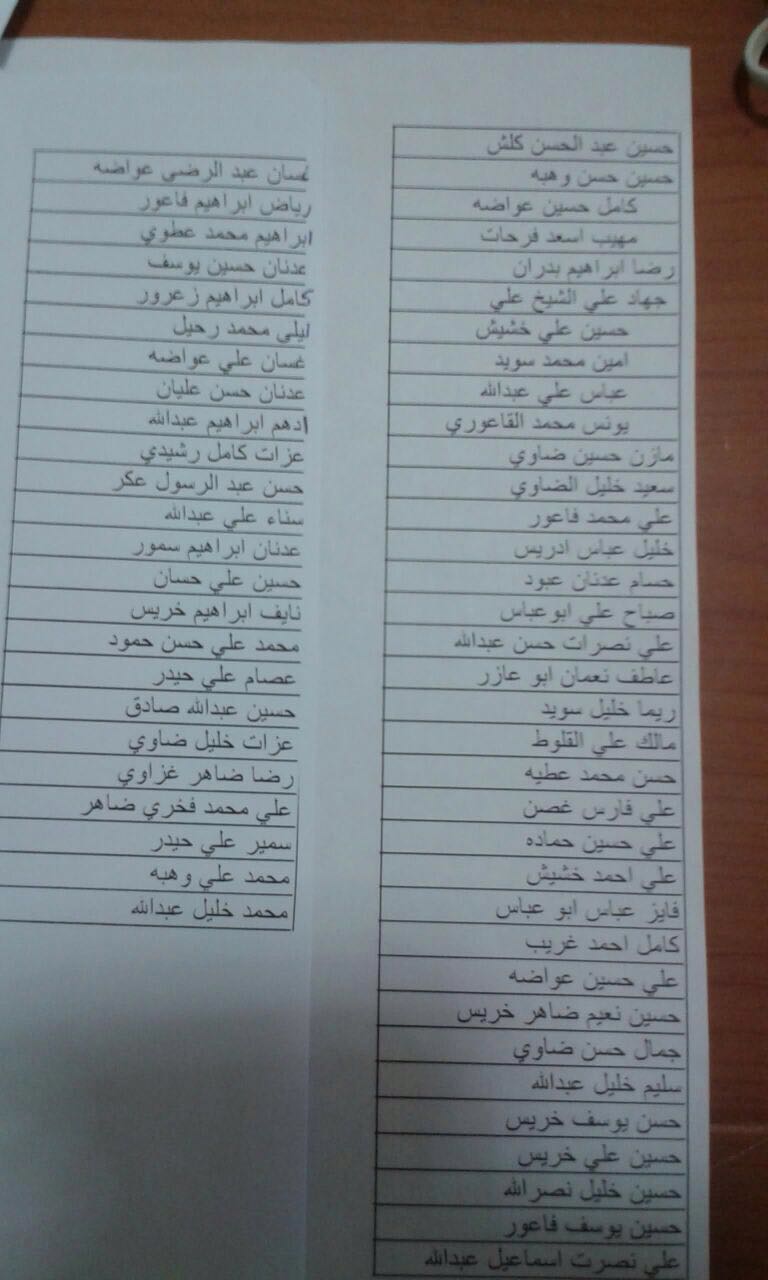 حسين عبد الحسن كلش
حسين حسن وهبه
كامل حسين عواضه
مهيب اسعد فرحات
رضا ابراهيم بدران
جهاد علي الشيخ علي
حسين علي خشيش
امين محمد سويد
عباس علي عبدالله
يونس محمد القاعوري
مازن حسين ضاوي
سعيد خليل الضاوي
علي محمد فاعور
خليل عباس ادريس
حسام عدنان عبود
صباح علي ابوعباس
علي نصرات حسن عبدالله
عاطف نعمان ابو عازر
ريما خليل سويد
مالك علي القلوط
حسن محمد عطيه
علي فارس غصن
علي حسين حماده
علي احمد خشيش
فايز عباس ابو عباس
كامل احمد غريب
علي حسين عواضه
حسين نعيم ضاهر خريس
جمال حسن ضاوي
سليم خليل عبدالله
حسن يوسف خريس
حسين علي خريس
حسين خليل نصرالله
حسين يوسف فاعور
علي نصرت اسماعيل عبدالله
غسان عبد الرضى عواضه
رياض ابراهيم فاعور
ابراهيم محمد عطوي
عدنان حسين يوسف
كامل ابراهيم زعرور
ليلى محمد رحيل
غسان علي عواضه
عدنان حسن عليان
ادهم ابراهيم عبدالله
عزات كامل رشيدي
حسن عبد الرسول عكر
سناء علي عبدالله
عدنان ابراهيم سمور
حسين علي حسان
نايف ابراهيم خريس
محمد علي حسن حمود
عصام علي حيدر
حسين عبدالله صادق
عزات خليل ضاوي
رضا ضاهر غزاوي
علي محمد فخري ضاهر
سمير علي حيدر
محمد علي وهبه
محمد خليل عبدالله